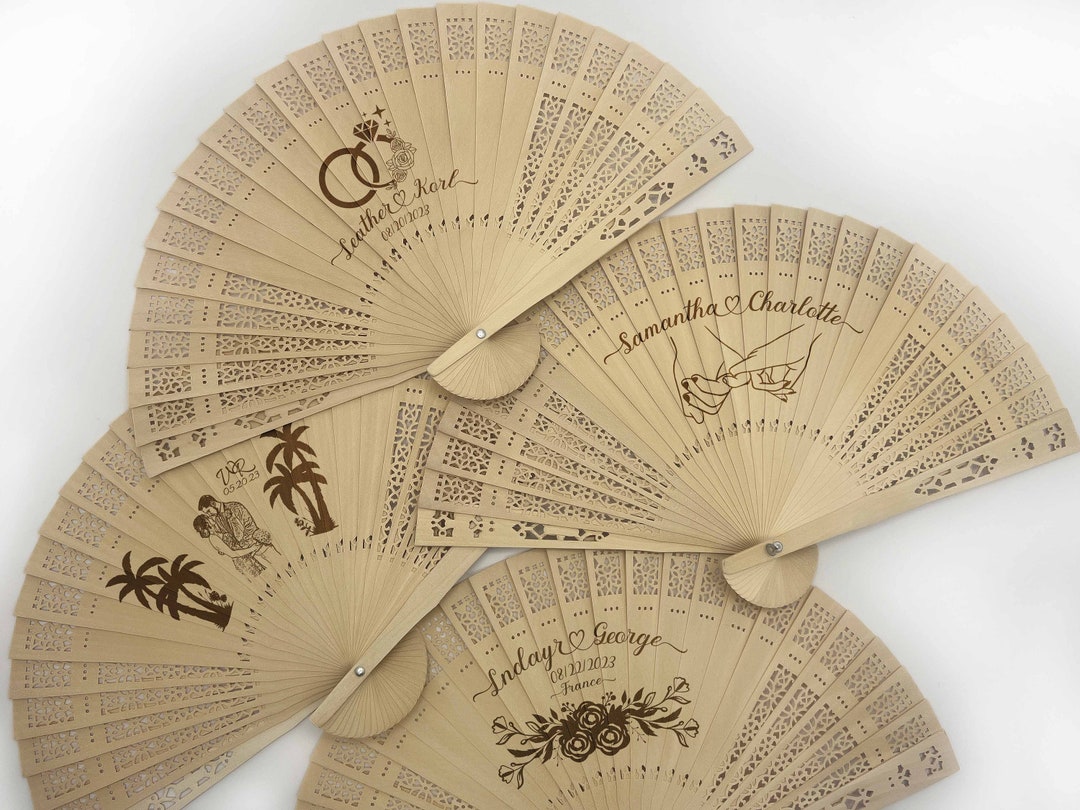 Leather♡Karl
08/20/2023
Samantha♡Charlotte
V&R
05.20.23
Lndayr♡George
08/22/2023
France